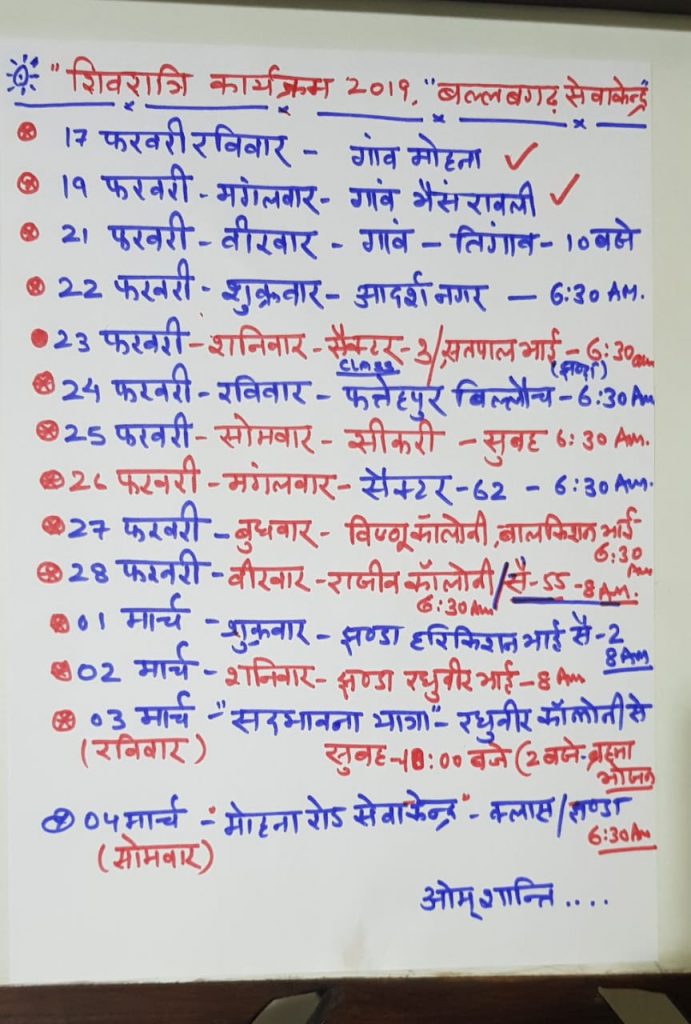 "शिवरात्रि कार्यक्रम 2019," "बल्लबगढ़ सेवाकेन्द्र"
17 फरवरी रविवार - गांव मोहना ✓
19 फरवरी - मंगलवार - गांव भैंसरावली ✓
21 फरवरी - वीरवार - गांव - तिगांव - 10 बजे
22 फरवरी - शुक्रवार - आदर्श नगर - 6:30 AM.
23 फरवरी - शनिवार - सैक्टर-3/सतपाल भाई - 6:30 am
CLASS (झण्डा)
24 फरवरी - रविवार - फत्तेहपुर बिल्लौच - 6:30 Am
25 फरवरी - सोमवार - सीकरी - सुबह 6:30 Am.
26 फरवरी - मंगलवार - सैक्टर-62 - 6:30 Am.
27 फरवरी - बुधवार - विष्णू कॉलोनी, बालकिशन भाई-
6:30 Am
28 फरवरी - वीरवार - राजीव कॉलोनी/सै-55-8 AM.
6:30 Am
01 मार्च - शुक्रवार - झण्डा हरिकिशन भाई सै-2
8 Am
02 मार्च - शनिवार - झण्डा रघुवीर भाई - 8 Am
03 मार्च - "सदभावना यात्रा" - रघुवीर कॉलोनी से
(रविवार) सुबह - 10:00 बजे (2 बजे - ब्रह्मा
भोजन
04 मार्च - "मोहना रोड सेवाकेन्द्र" - क्लास/झण्डा
(सोमवार) 6:30 Am
ओम् शान्ति ....